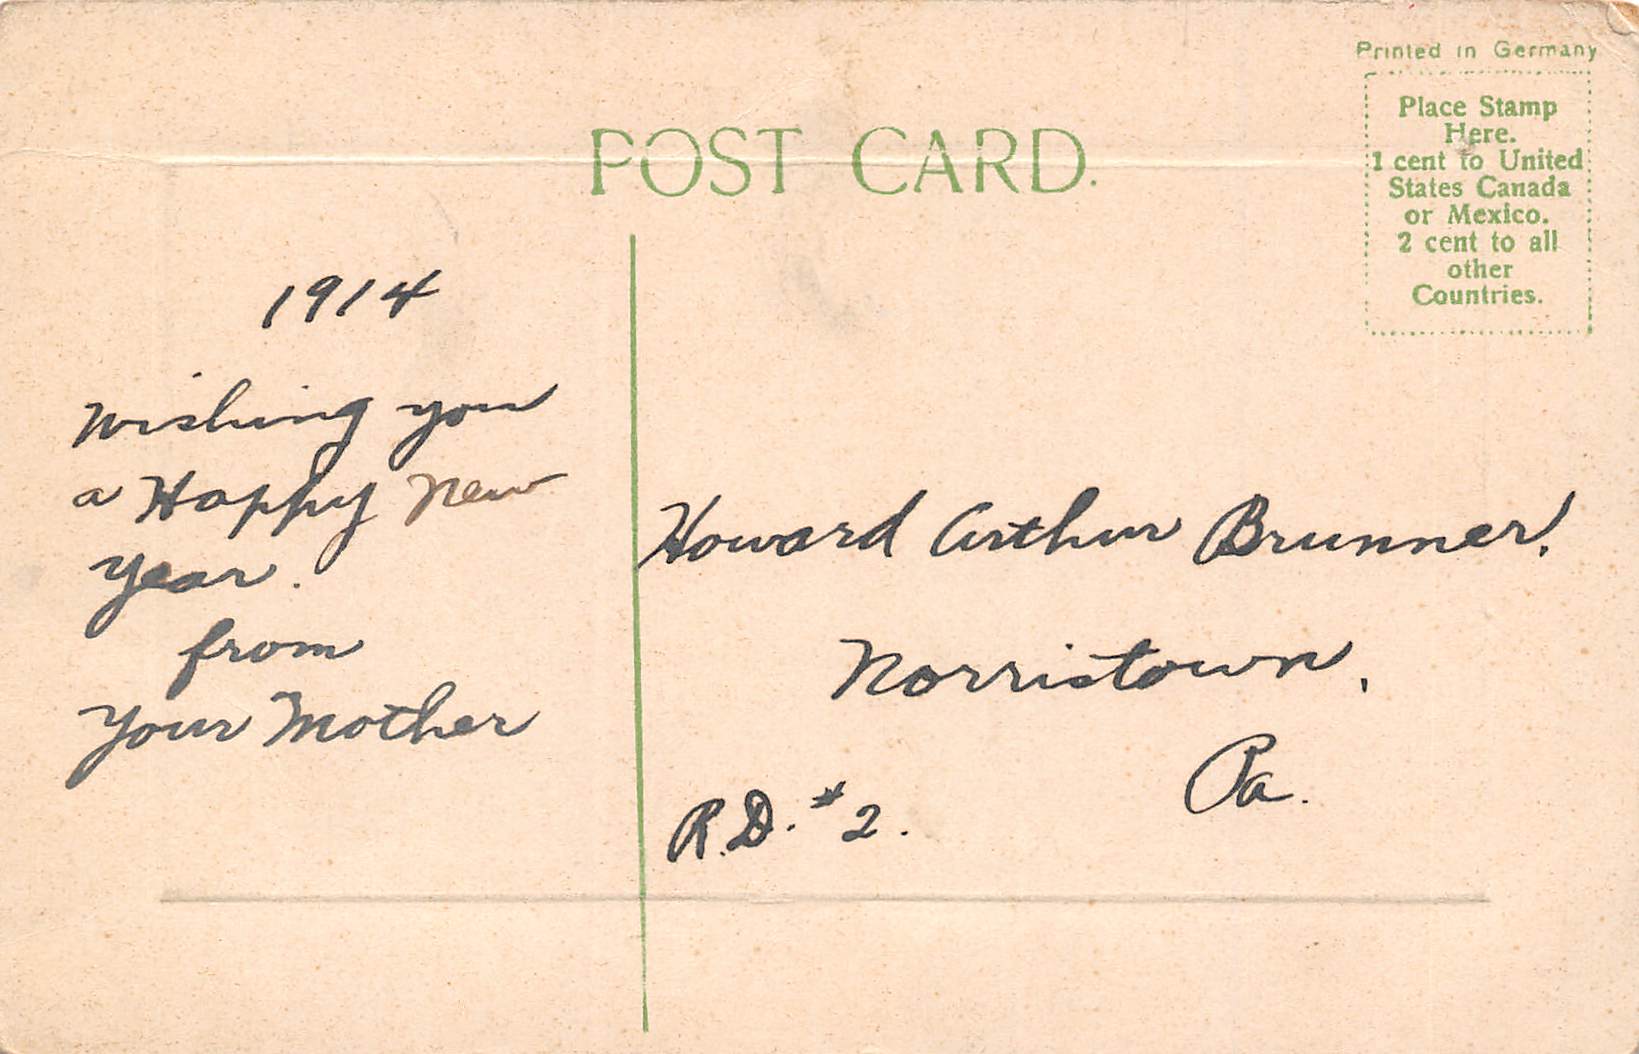 Printed in Germany
Place Stamp
Here.
1 cent to United
States Canada
or Mexico.
2 cent to all
other
Countries.
POST CARD.
1914
Wishing you
a Happy New
Year.
from
Your Mother
Howard Arthur Brunner.
Norristown,
Pa.
R.D. #2.